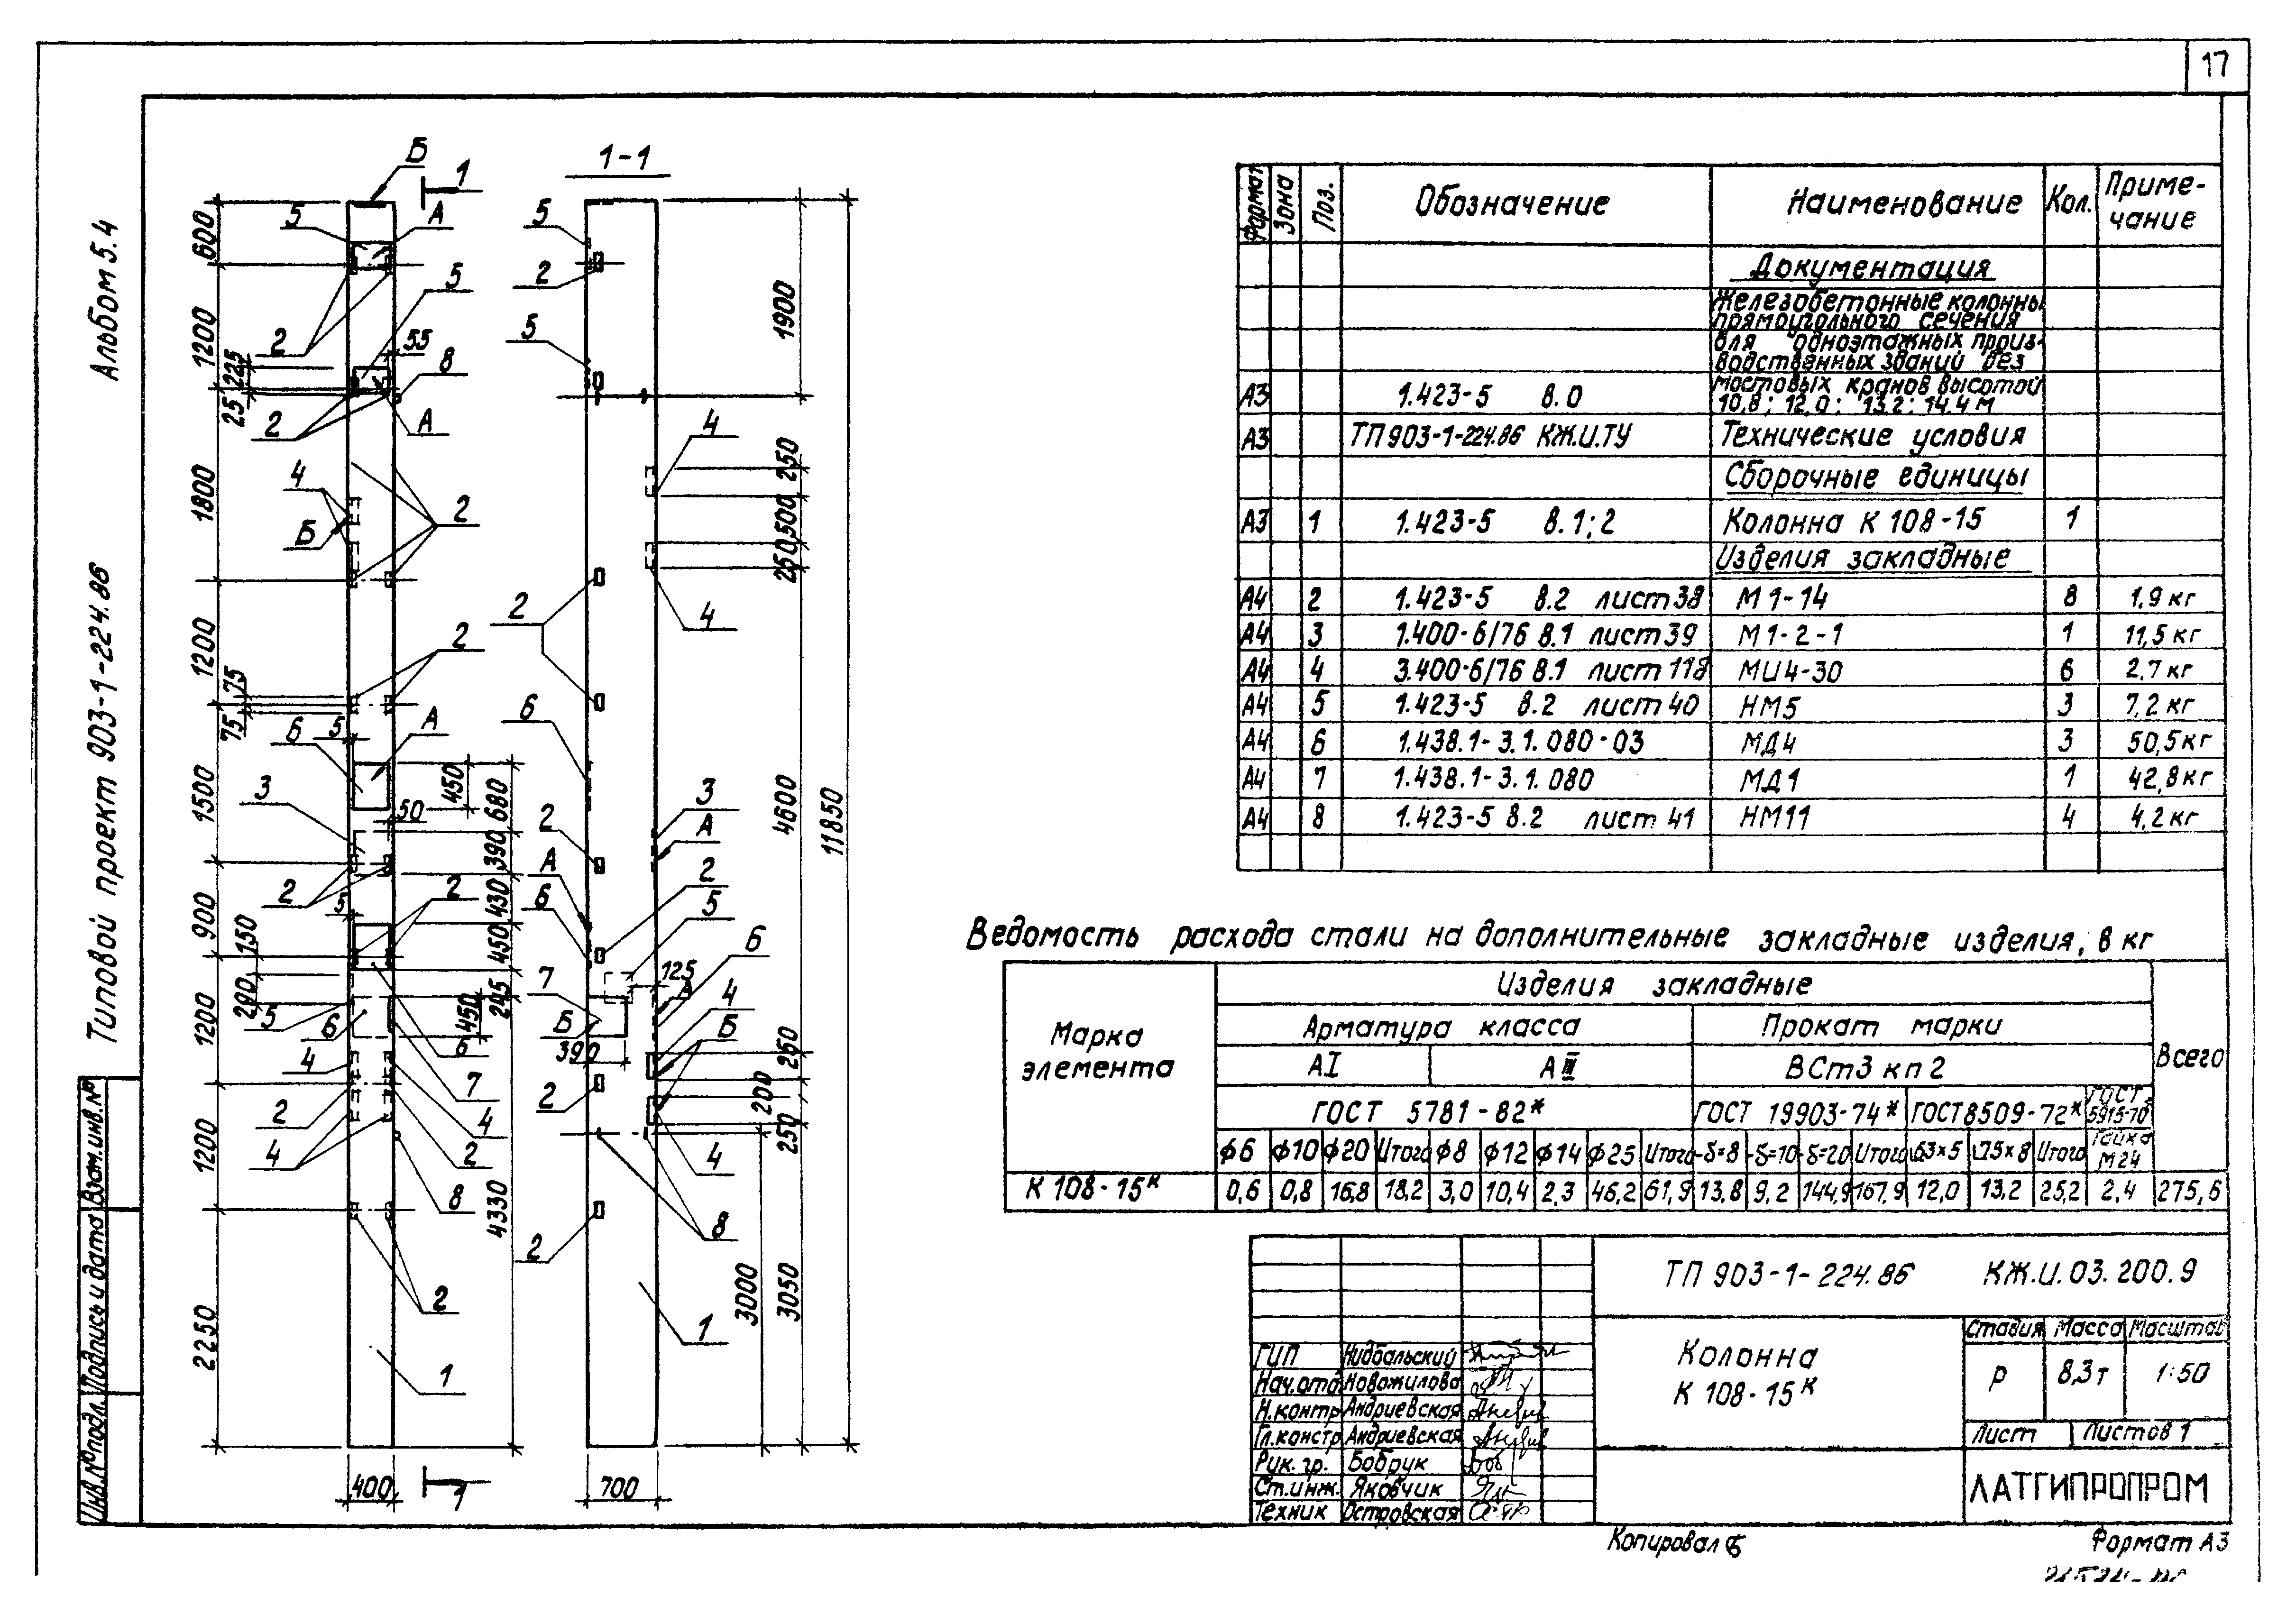 17
Альбом 5.4
Типовой проект 903-1-224.86
Взам.инв.№
Подпись и дата
Инв.№подл.
Б
1
5
А
600
5
1200
2
55
8
225
25
2
А
4
Б
2
1800
1200
2
75
75
5
6
А
450
680
3
50
1500
390
2
2
430
5
900
150
450
290
245
5
6
450
6
4
7
1200
2
4
4
2
1200
8
4330
2
2250
1
400
1
1-1
5
2
5
1900
4
250
500
250
4
2
6
3
А
4600
11850
2
А
2
6
5
6
125
А
7
4
Б
Б
390
250
2
200
250
4
8
2
3000
3050
1
700
Формат Зона Поз. Обозначение Наименование Кол. Приме-
чание
Документация
Железобетонные колонны
прямоугольного сечения
для одноэтажных произ-
водственных зданий без
мостовых кранов высотой
А3 1.423-5 в.0 10,8; 12,0; 13,2; 14,4 м
А3 ТП 903-1-224.86 КЖ.И.ТУ Технические условия
Сборочные единицы
А3 1 1.423-5 в.1;2 Колонна К 108-15 1
Изделия закладные
А4 2 1.423-5 в.2 лист 38 М1-14 8 1,9 кг
А4 3 1.400-6/76 в.1 лист 39 М1-2-1 1 11,5 кг
А4 4 3.400-6/76 в.1 лист 118 МИ4-30 6 2,7 кг
А4 5 1.423-5 в.2 лист 40 НМ5 3 7,2 кг
А4 6 1.438.1-3.1.080-03 МД4 3 50,5кг
А4 7 1.438.1-3.1.080 МД1 1 42,8кг
А4 8 1.423-5 в.2 лист 41 НМ11 4 4,2 кг
Ведомость расхода стали на дополнительные закладные изделия, в кг
Марка
элемента
Изделия закладные
Всего
Арматура класса Прокат марки
АI АIII ВСт3 кп 2
ГОСТ 5781-82* ГОСТ 19903-74* ГОСТ8509-72* ГОСТ 5915-70
ф6 ф10 ф20 Итого ф8 ф12 ф14 ф25 Итого -δ=8 -δ=10 -δ=20 Итого ∟63×5 ∟75×8 Итого Гайка М24
К 108-15к 0,6 0,8 16,8 18,2 3,0 10,4 2,3 46,2 61,9 13,8 9,2 144,9 167,9 12,0 13,2 25,2 2,4 275,6
ТП 903-1-224.86 КЖ.И.03.200.9
Колонна
К 108-15к
Стадия Масса Масштаб
Р 8,3т 1:50
Лист Листов 1
ЛАТГИПРОПРОМ
ГИП Нидбальский
Нач.отд Новожилова
Н.контр Андриевская
Гл.констр Андриевская
Рук. гр. Бобрук
Ст.инж. Яковчик
Техник Островская
Копировал
Формат А3